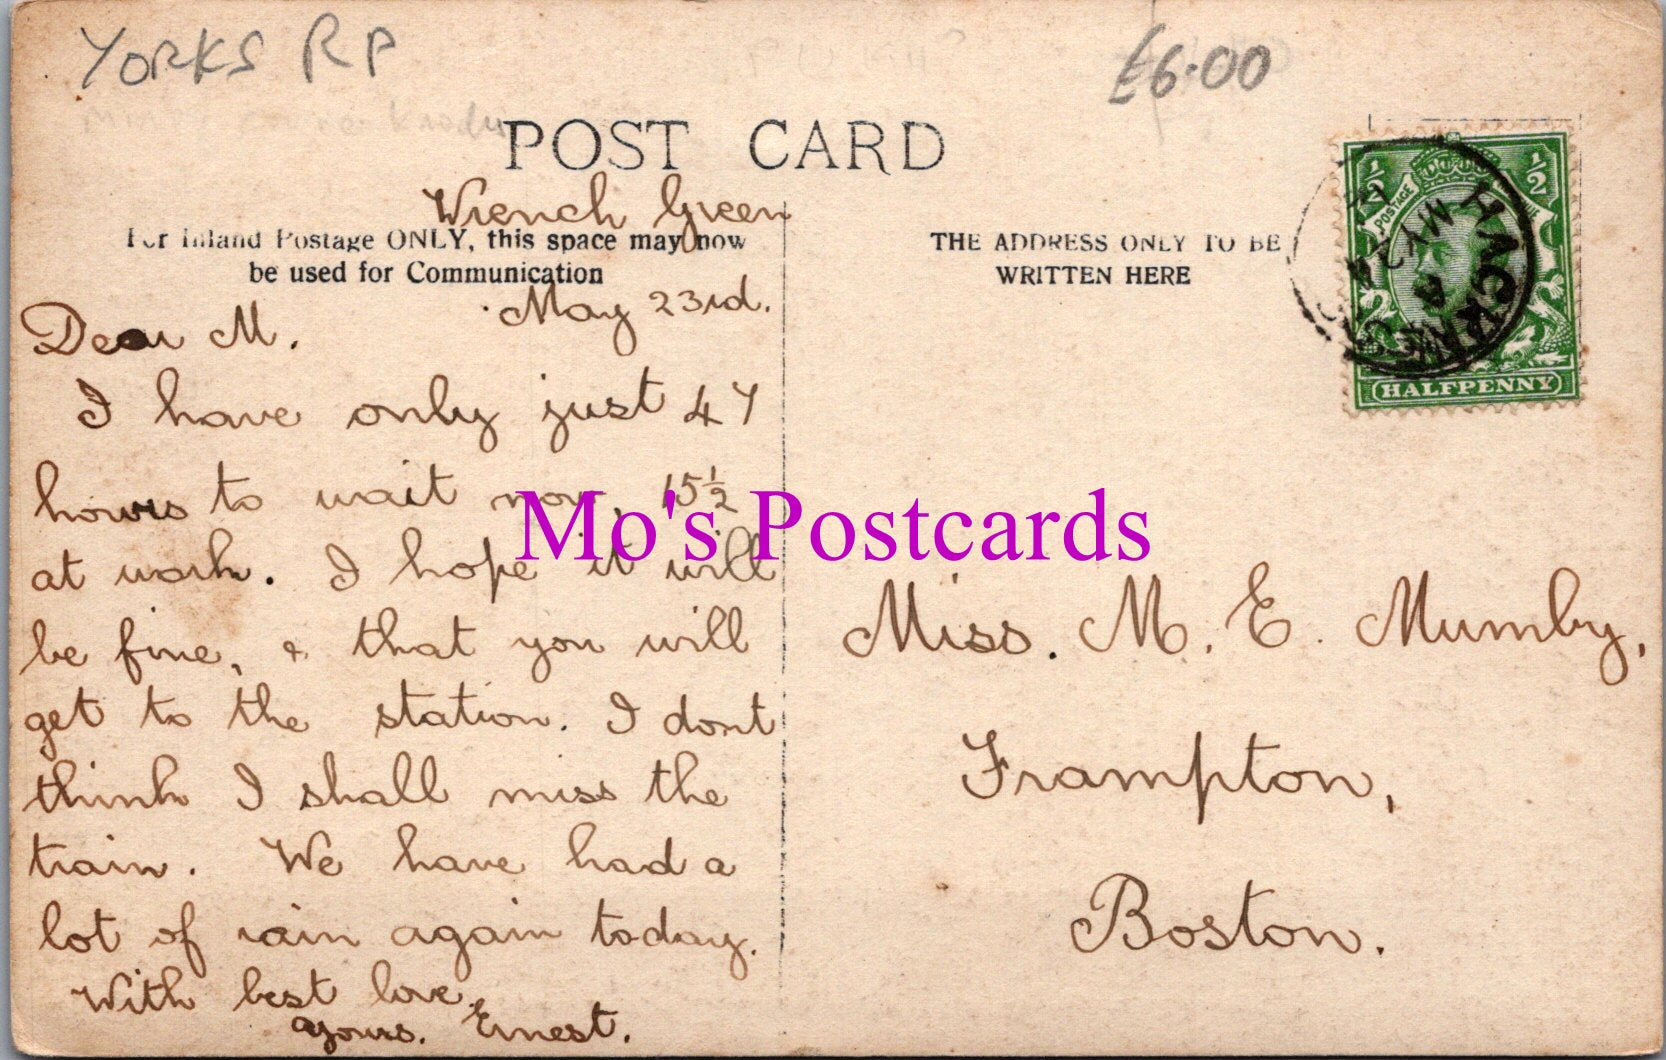 YORKS RP
£6.00
POST CARD
Wrench Green
For Inland Postage ONLY, this space may now
be used for Communication
May 23rd.
Dear M.
I have only just 47
hours to wait now, 15½
at work. I hope it will
be fine, & that you will
get to the station. I dont
think I shall miss the
train. We have had a
lot of rain again today.
With best love,
yours. Ernest.
THE ADDRESS ONLY TO BE
WRITTEN HERE
½ ½
POSTAGE
HALFPENNY
HACKNESS
MY 23
Miss. M. E. Mumby,
Frampton,
Boston.
Mo's Postcards